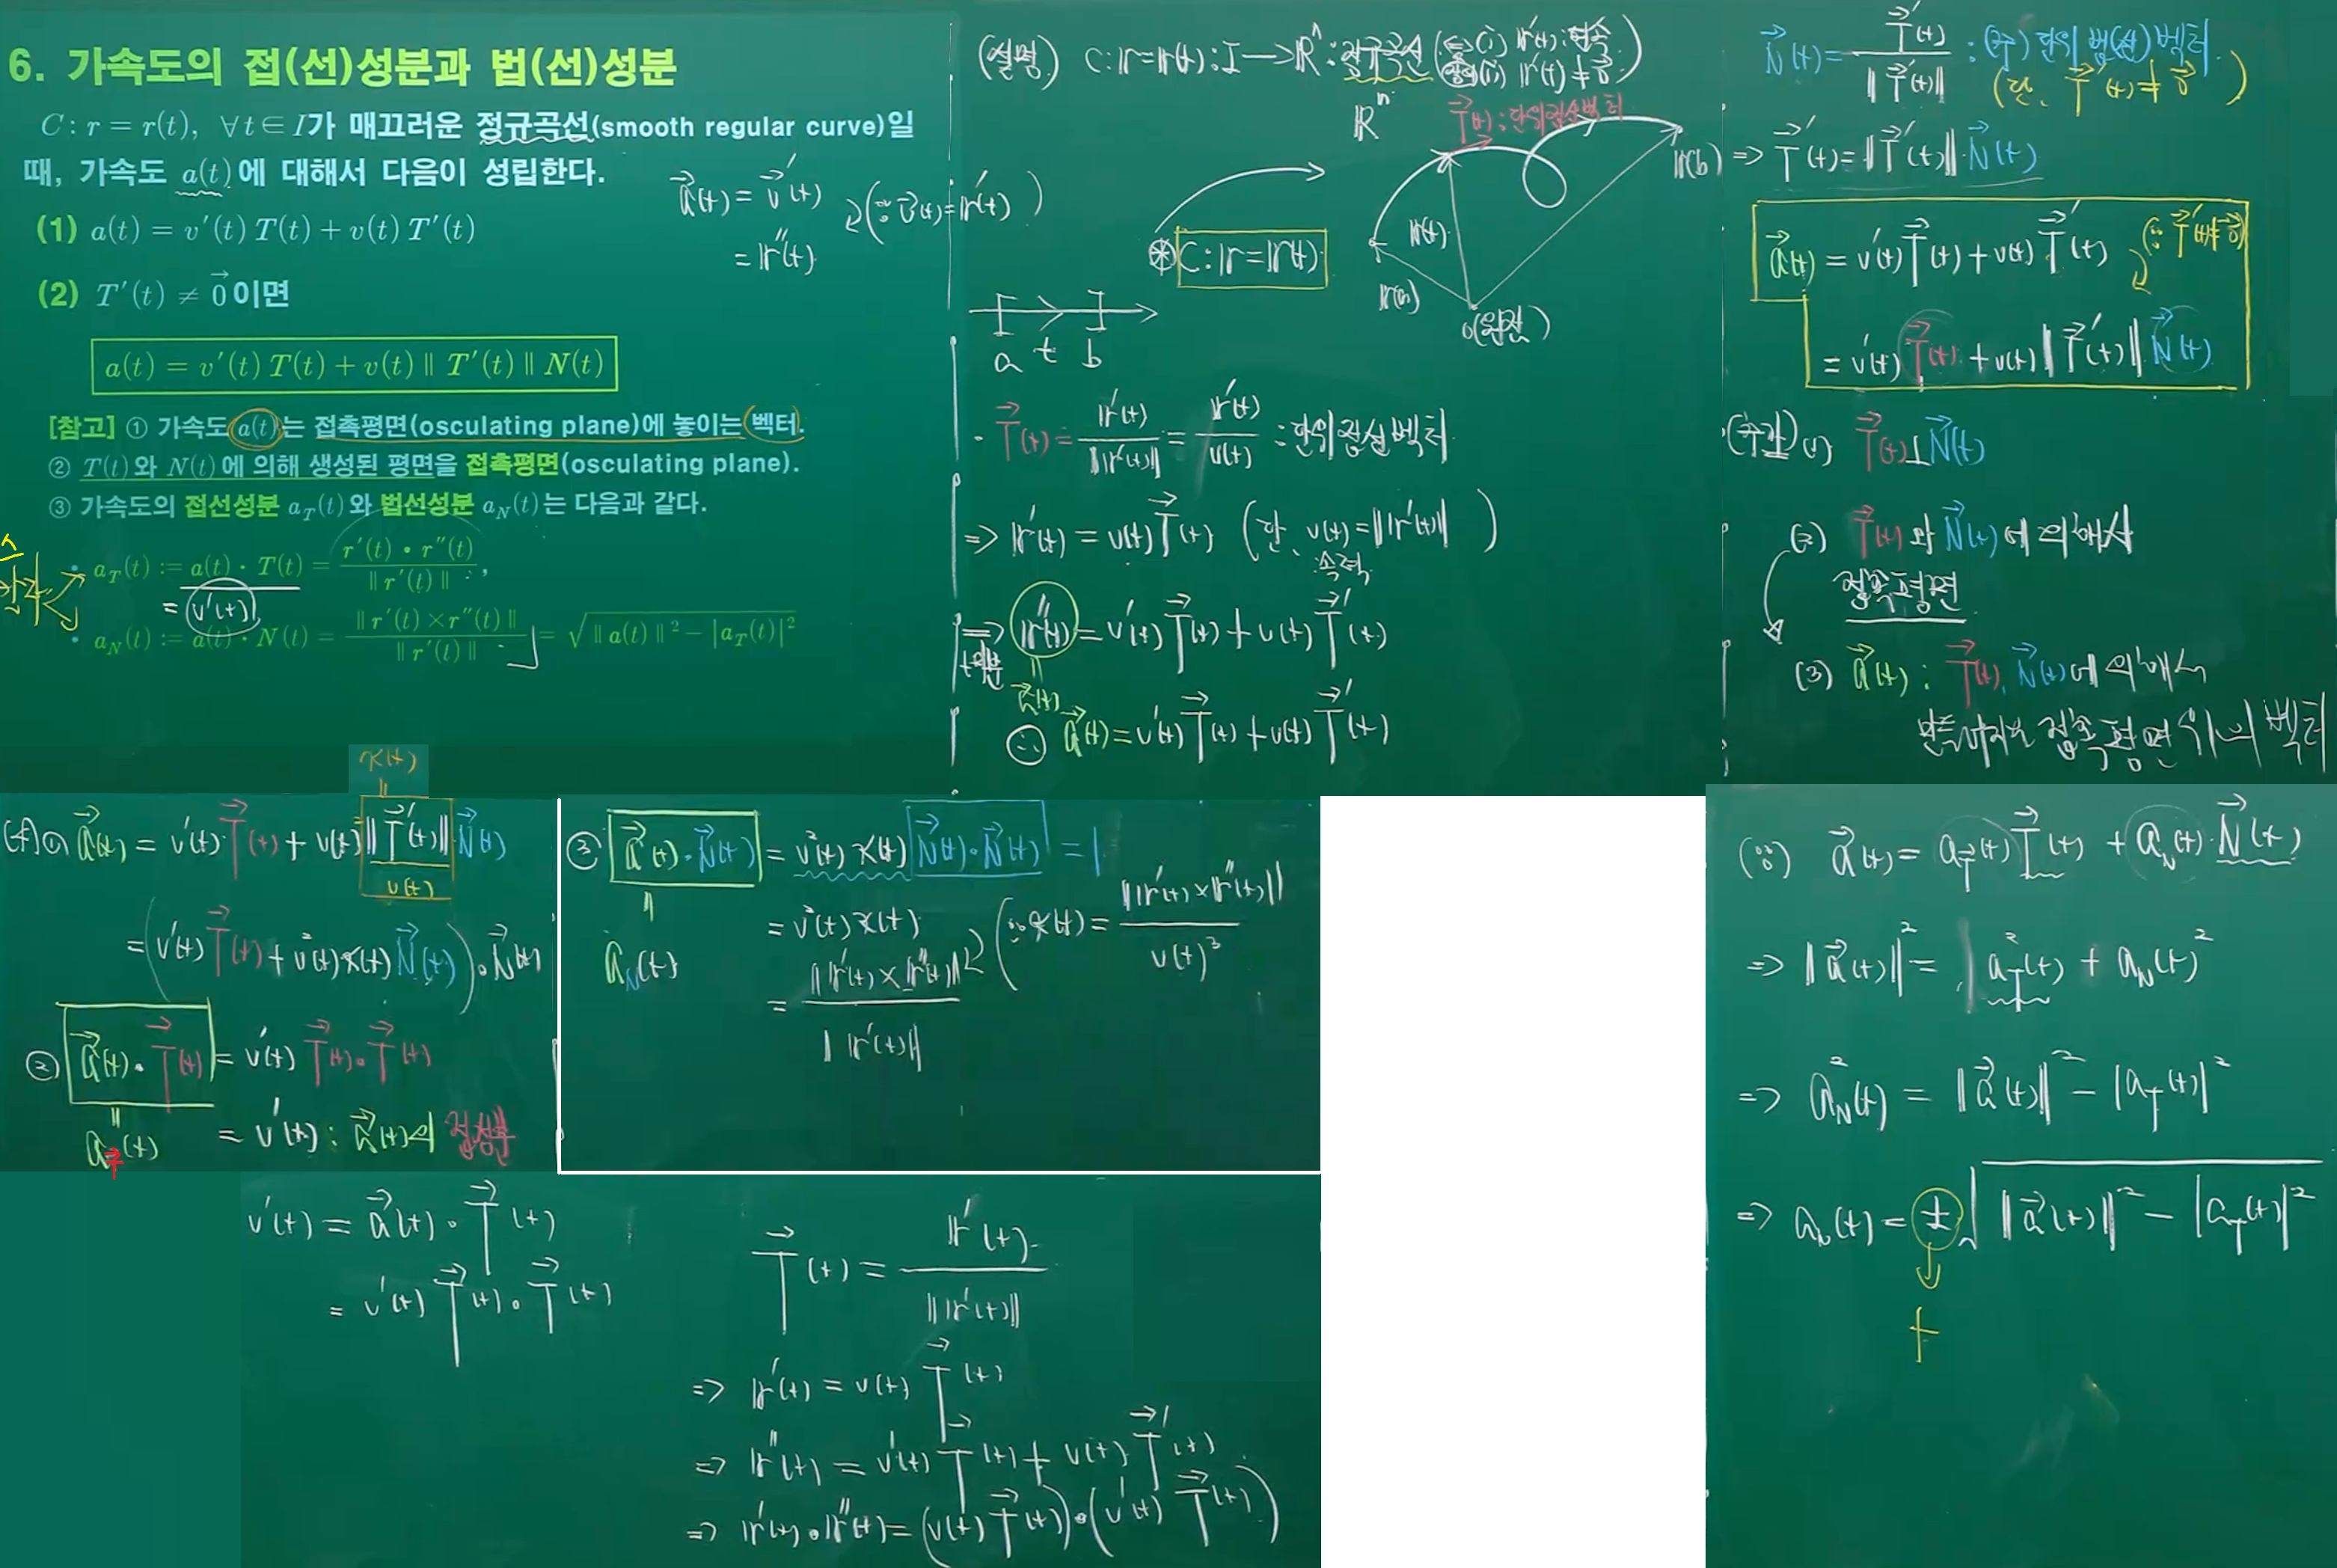 6. 가속도의 접(선)성분과 법(선)성분
C : r = r(t), ∀t∈I가 매끄러운 정규곡선(smooth regular curve)일
때, 가속도 a(t)에 대해서 다음이 성립한다.
(1) a(t) = v′(t) T(t) + v(t) T′(t)
(2) T′(t) ≠ 0⃗ 이면
a(t) = v′(t) T(t) + v(t) ‖ T′(t) ‖ N(t)
[참고] ① 가속도 a(t)는 접촉평면(osculating plane)에 놓이는 벡터.
② T(t)와 N(t)에 의해 생성된 평면을 접촉평면(osculating plane).
③ 가속도의 접선성분 a_T(t)와 법선성분 a_N(t)는 다음과 같다.
• a_T(t) := a(t) · T(t) = r′(t) • r″(t) / ‖ r′(t) ‖ ,
= v′(t)
• a_N(t) := a(t) · N(t) = ‖ r′(t) × r″(t) ‖ / ‖ r′(t) ‖ = √(‖ a(t) ‖² − |a_T(t)|²)
a⃗(t) = v⃗′(t)
(∵ v⃗(t) = r′(t))
= r″(t)
(설명) C : r = r(t) : I → Rⁿ : 정규곡선 (⇔ (i) r′(t) : 연속
(ii) r′(t) ≠ 0⃗)
Rⁿ
T⃗(t) : 단위접선벡터
r(b)
r(t)
r(a)
0(원점)
⊛ C : r = r(t)
a t b
· T⃗(t) = r′(t) / ‖r′(t)‖ = r′(t) / v(t) : 단위접선벡터
⇒ r′(t) = v(t) T⃗(t) (단, v(t) = ‖r′(t)‖)
속력
⇒ r″(t) = v′(t) T⃗(t) + v(t) T⃗′(t)
t미분
‖
a⃗(t)
∴ a⃗(t) = v′(t) T⃗(t) + v(t) T⃗′(t)
N⃗(t) = T⃗′(t) / ‖T⃗′(t)‖ : (주) 단위 법(선)벡터
(단, T⃗′(t) ≠ 0⃗)
⇒ T⃗′(t) = ‖T⃗′(t)‖ N⃗(t)
a⃗(t) = v′(t) T⃗(t) + v(t) T⃗′(t)
(∵ T⃗′(t) ≠ 0⃗)
= v′(t) T⃗(t) + v(t) ‖T⃗′(t)‖ N⃗(t)
(1) T⃗(t) ⊥ N⃗(t)
(2) T⃗(t) 와 N⃗(t)에 의해서
접촉평면
(3) a⃗(t) : T⃗(t), N⃗(t)에 의해서
만들어지는 접촉평면위의 벡터
κ(t)
‖
① a⃗(t) = v′(t) T⃗(t) + v(t) ‖T⃗′(t)‖ N⃗(t)
v(t)
= (v′(t) T⃗(t) + v²(t) κ(t) N⃗(t)) · N⃗(t)
② a⃗(t) · T⃗(t) = v′(t) T⃗(t) · T⃗(t)
‖
a_T⃗(t)
= v′(t) : a⃗(t)의 접성분
③ a⃗(t) · N⃗(t) = v²(t) κ(t) N⃗(t) · N⃗(t) = 1
‖
a_N(t)
= v²(t) κ(t)
(∵ κ(t) = ‖r′(t) × r″(t)‖ / v(t)³
= ‖r′(t) × r″(t)‖ / ‖r′(t)‖
(∵) a⃗(t) = a_T⃗(t) T⃗(t) + a_N(t) · N⃗(t)
⇒ ‖a⃗(t)‖² = a_T²(t) + a_N(t)²
⇒ a_N²(t) = ‖a⃗(t)‖² − |a_T(t)|²
⇒ a_N(t) = ± √(‖a⃗(t)‖² − |a_T(t)|²)
+
v′(t) = a⃗(t) · T⃗(t)
= v′(t) T⃗(t) · T⃗(t)
T⃗(t) = r′(t) / ‖r′(t)‖
⇒ r′(t) = v(t) T⃗(t)
⇒ r″(t) = v′(t) T⃗(t) + v(t) T⃗′(t)
⇒ r′(t) · r″(t) = (v(t) T⃗(t)) · (v′(t) T⃗(t))